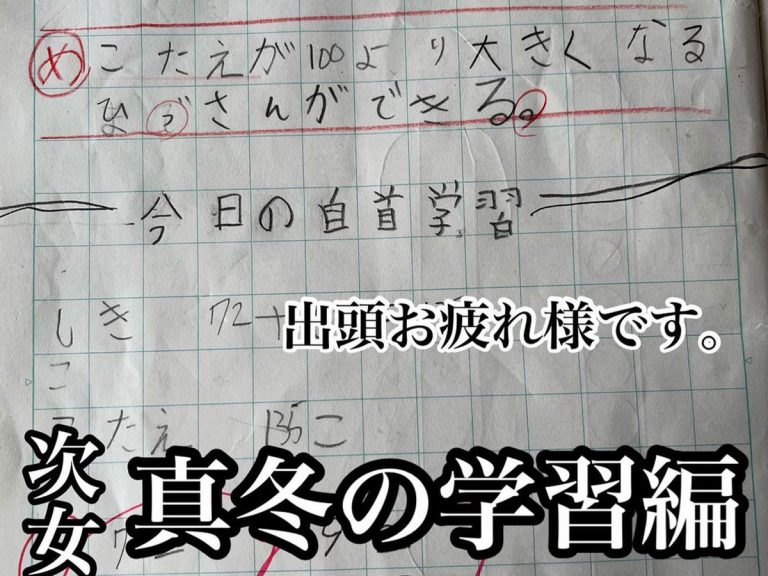 め こたえが100より大きくなる
ひっさんができる。
今日の自首学習
しき 72+
出頭お疲れ様です。
こ
こたえ 135こ
次女
真冬の学習編